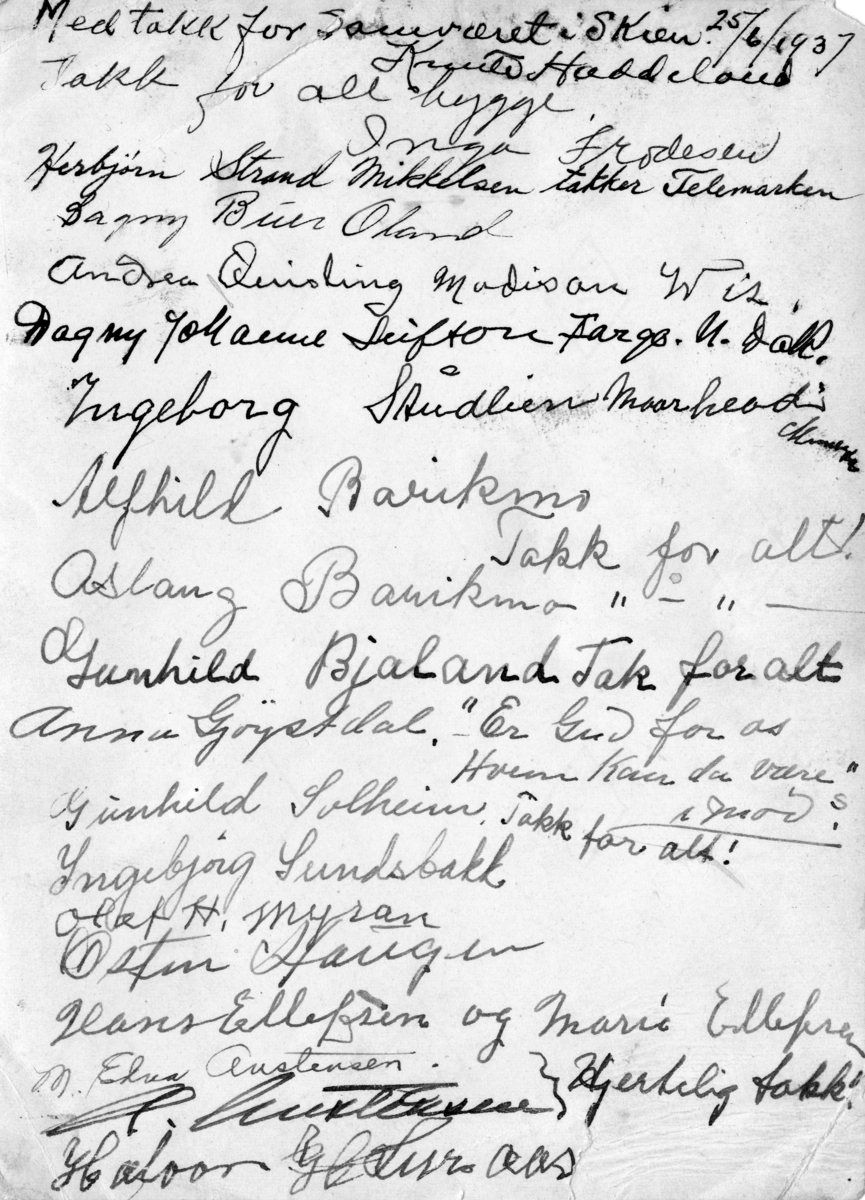 Med takk for samværet i Skien. 25/6/1937
Knut Haddeland
Takk for all hygge.
Inga Frodesen
Herbjörn Strand Mikkelsen takker Telemarken
Dagny Buer Oland
Andrea Quisling Madison Wis.
Dagny Fargo. N. Dak.
Ingeborg Moorhead
Alfhild Barikmo
Takk for alt!
Aslaug Barikmo " - " -
Gunhild Bjaland Tak for alt
Anna Gjöystdal. "Er Gud for os
Hvem Kan da være"
i mod?
Gunhild Solheim. Takk for alt!
Ingebjörg Sundsbakk
Olaf H. Myran
Östen Haugen
Hans Ellefsen og Marie Ellefsen
M. Edna Austensen.
Hjertelig takk!
Halvor